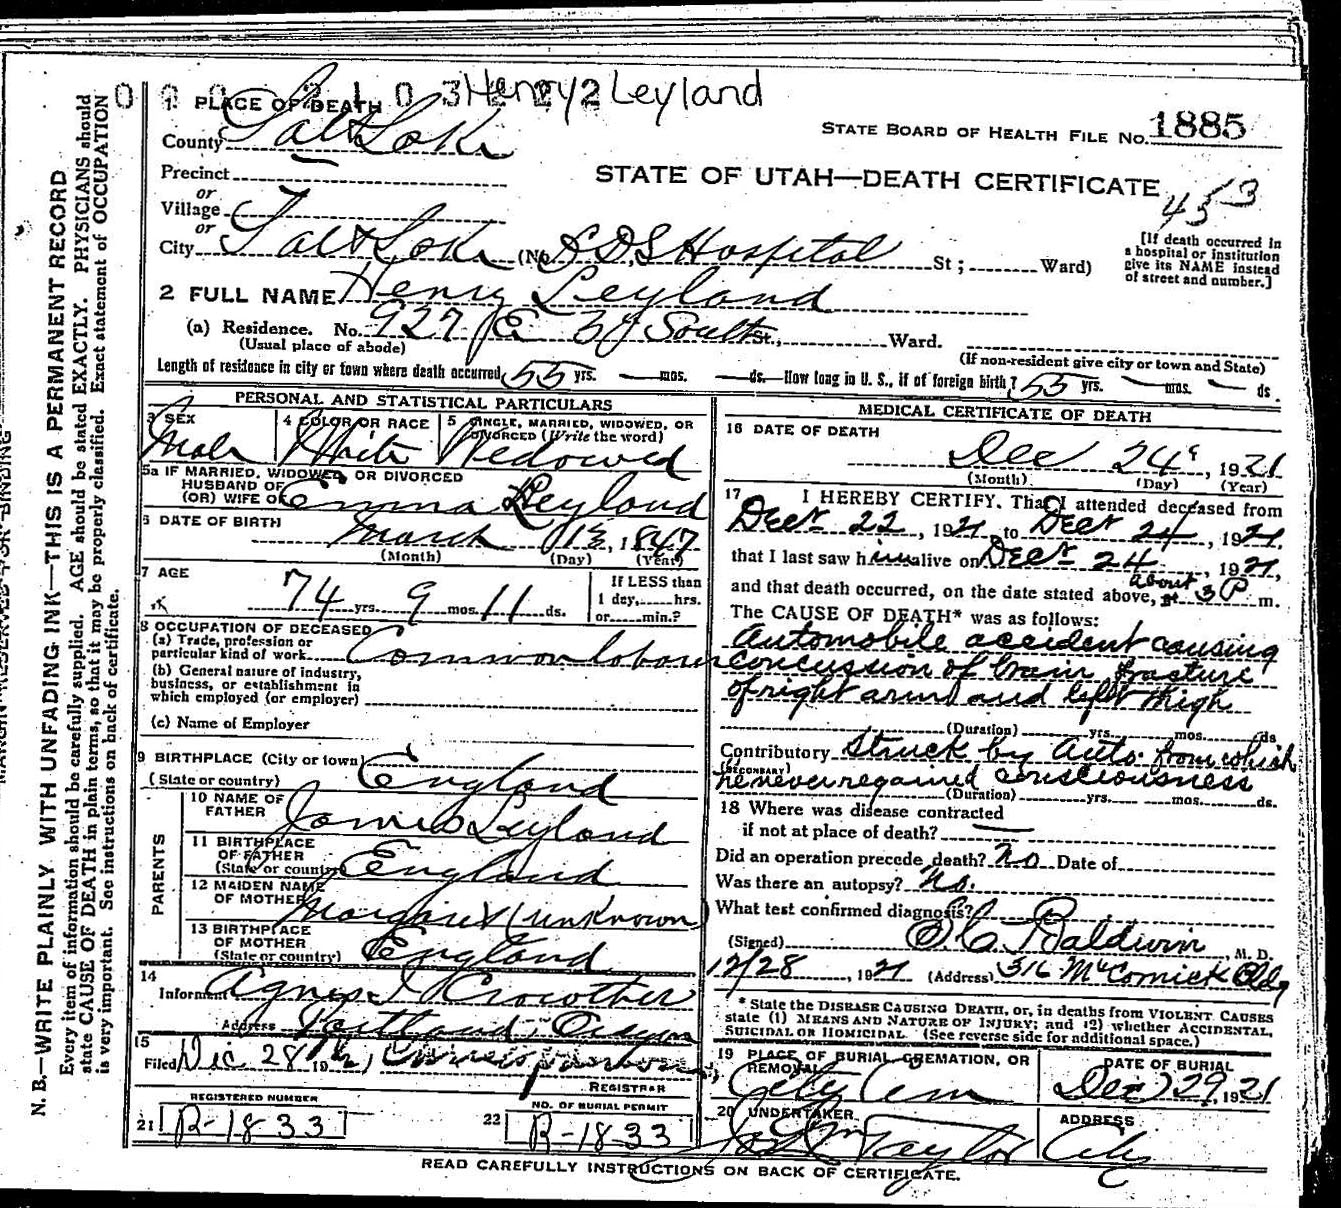 Henry Leyland
1 PLACE OF DEATH
County Salt Lake
STATE BOARD OF HEALTH FILE No. 1885
Precinct
STATE OF UTAH—DEATH CERTIFICATE
453
or
Village
or
City Salt Lake (No. LDS Hospital St; Ward)
[If death occurred in
a hospital or institution
give its NAME instead
of street and number.]
2 FULL NAME Henry Leyland
(a) Residence. No. 927 E 3d South St., Ward.
(Usual place of abode)
(If non-resident give city or town and State)
Length of residence in city or town where death occurred 55 yrs. — mos. — ds. How long in U. S., if of foreign birth? 55 yrs. — mos. — ds.
PERSONAL AND STATISTICAL PARTICULARS
3 SEX
Male
4 COLOR OR RACE
White
5 SINGLE, MARRIED, WIDOWED, OR
DIVORCED (Write the word)
Widowed
5a IF MARRIED, WIDOWED, OR DIVORCED
HUSBAND OF
(OR) WIFE OF Emma Leyland
6 DATE OF BIRTH
March 13, 1847
(Month) (Day) (Year)
7 AGE
74 yrs. 9 mos. 11 ds.
If LESS than
1 day, hrs.
or min.?
8 OCCUPATION OF DECEASED
(a) Trade, profession or
particular kind of work Common labour
(b) General nature of industry,
business, or establishment in
which employed (or employer)
(c) Name of Employer
9 BIRTHPLACE (City or town)
(State or country) England
PARENTS
10 NAME OF
FATHER James Leyland
11 BIRTHPLACE
OF FATHER
(State or country) England
12 MAIDEN NAME
OF MOTHER Margaret (unknown)
13 BIRTHPLACE
OF MOTHER
(State or country) England
14
Informant Agnes J Crowther
Address Portland, Oregon
15
Filed Dec 28
REGISTRAR
REGISTERED NUMBER
21 R-1833
NO. OF BURIAL PERMIT
22 R-1833
MEDICAL CERTIFICATE OF DEATH
16 DATE OF DEATH
Dec 24, 1921
(Month) (Day) (Year)
17 I HEREBY CERTIFY. That I attended deceased from
Dec 22, 1921, to Dec 24, 1921,
that I last saw him alive on Dec 24, 1921,
and that death occurred, on the date stated above, at about 3 P m.
The CAUSE OF DEATH* was as follows:
Automobile accident causing
concussion of brain, fracture
of right arm and left thigh
(Duration) yrs. mos. ds
Contributory Struck by Auto. from which
(SECONDARY)
he never regained consciousness
(Duration) yrs. mos. ds.
18 Where was disease contracted
if not at place of death? —
Did an operation precede death? No Date of
Was there an autopsy? No.
What test confirmed diagnosis?
(Signed) S C Baldwin, M. D.
12/28, 1921 (Address) 316 McCornick Bldg
* State the DISEASE CAUSING DEATH, or, in deaths from VIOLENT CAUSES
state (1) MEANS AND NATURE OF INJURY; and (2) whether ACCIDENTAL,
SUICIDAL OR HOMICIDAL. (See reverse side for additional space.)
19 PLACE OF BURIAL, CREMATION, OR
REMOVAL
City Cem
DATE OF BURIAL
Dec 29, 1921
20 UNDERTAKER
Jos Wm Taylor
ADDRESS
City
READ CAREFULLY INSTRUCTIONS ON BACK OF CERTIFICATE.
N. B.—WRITE PLAINLY, WITH UNFADING INK—THIS IS A PERMANENT RECORD
Every item of information should be carefully supplied. AGE should be stated EXACTLY. PHYSICIANS should
state CAUSE OF DEATH in plain terms, so that it may be properly classified. Exact statement of OCCUPATION
is very important. See instructions on back of certificate.